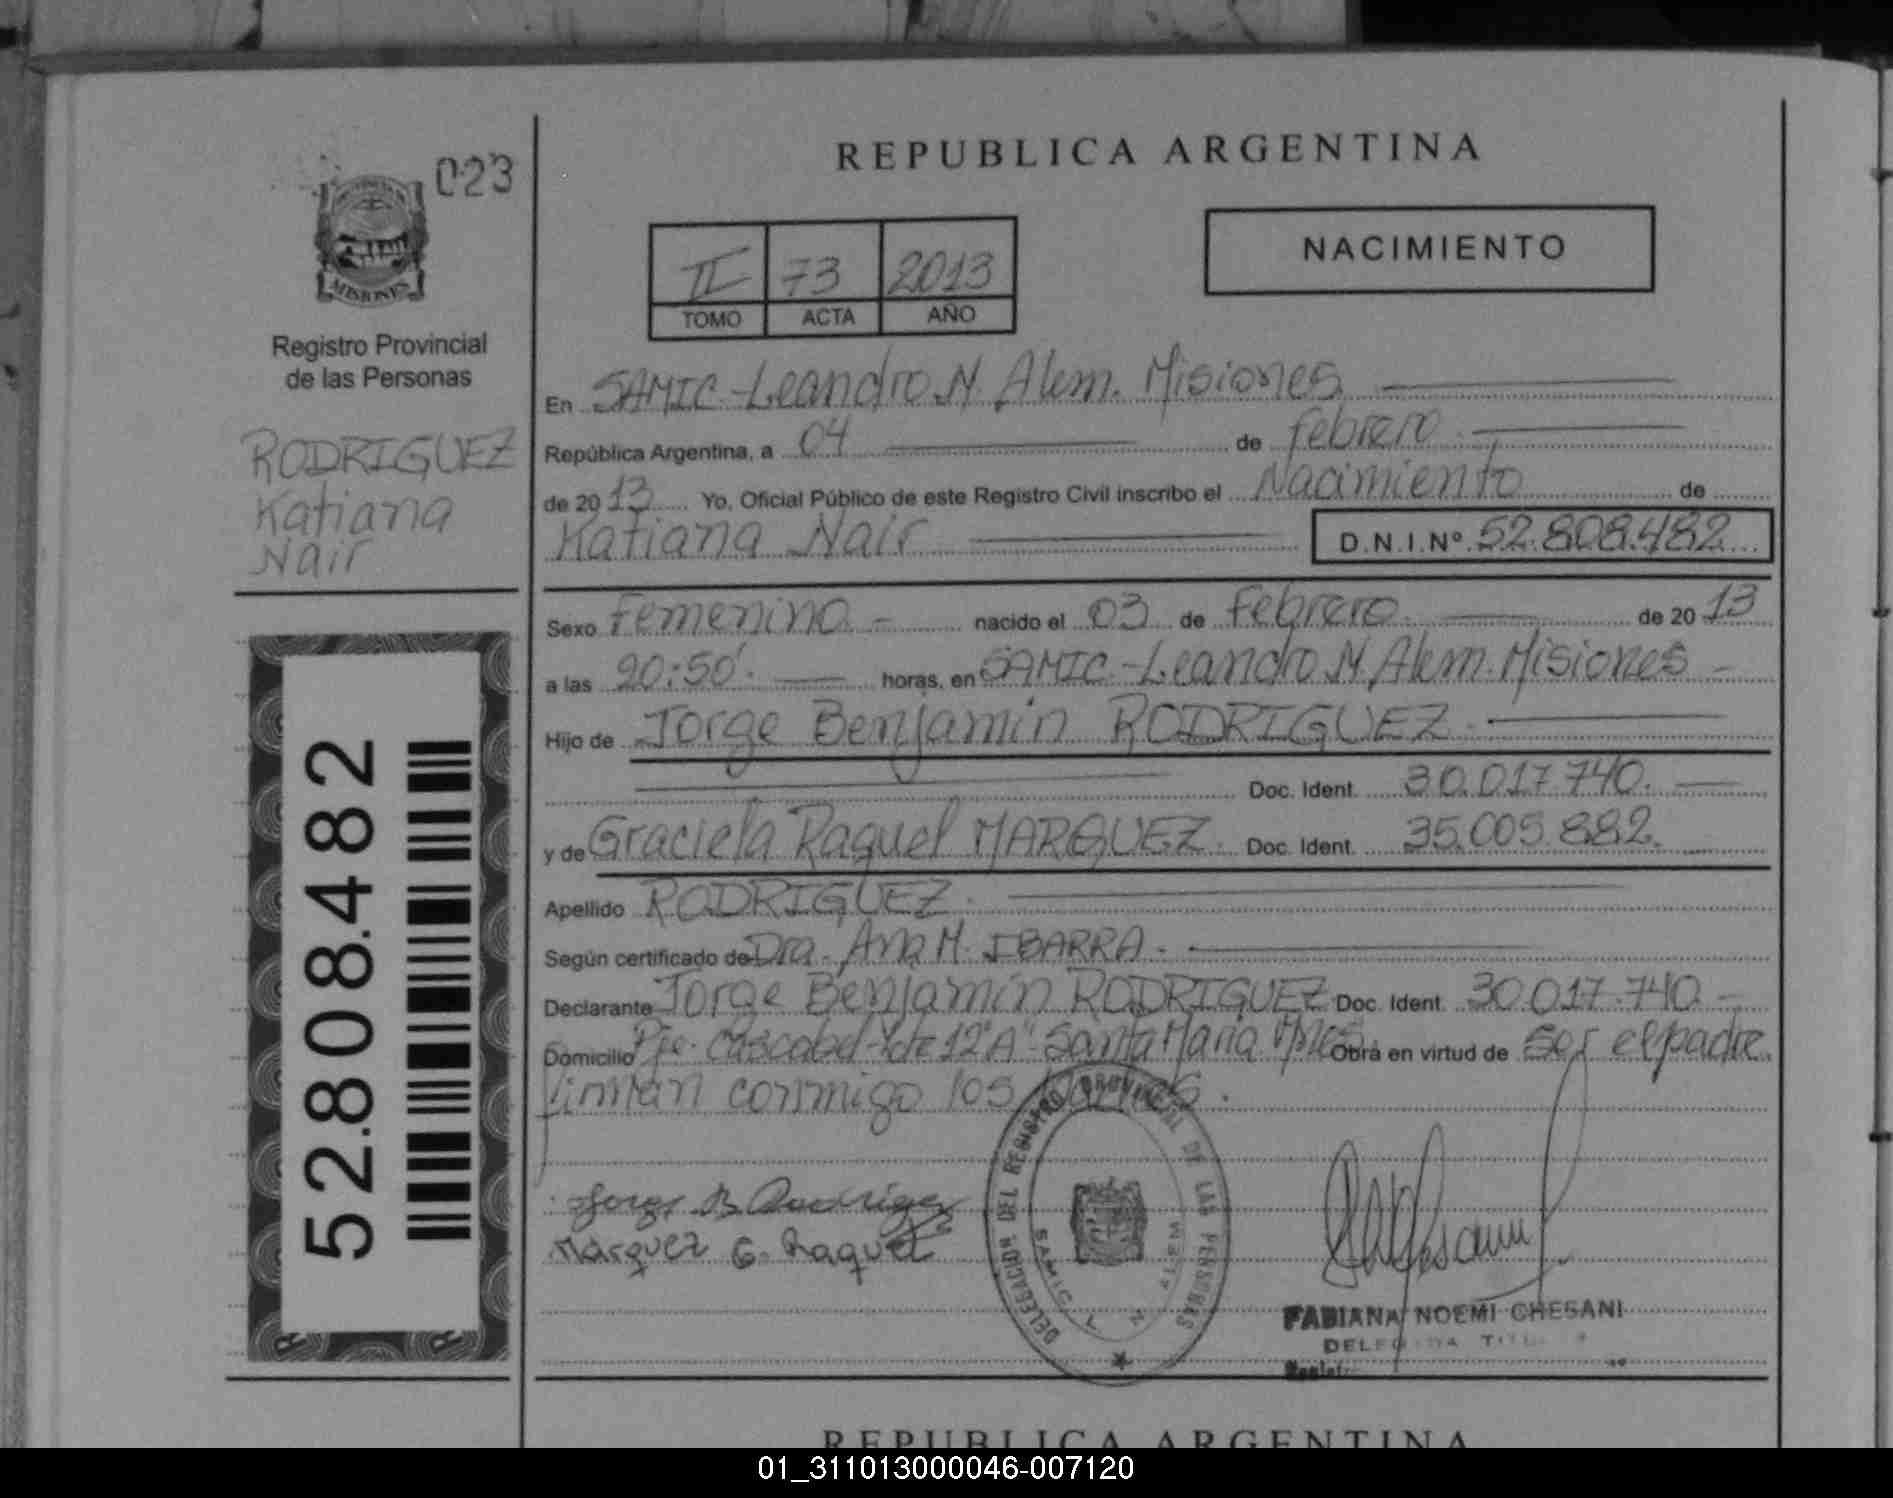 023
MISIONES
Registro Provincial
de las Personas
RODRIGUEZ
Katiana
Nair
52.808.482
REPUBLICA ARGENTINA
II 73 2013
TOMO ACTA AÑO
NACIMIENTO
En SAMIC - Leandro N. Alem. Misiones
República Argentina, a 04 de febrero
de 2013 Yo, Oficial Público de este Registro Civil inscribo el Nacimiento de
Katiana Nair D.N.I.Nº 52.808.482
Sexo Femenino - nacido el 03 de Febrero de 2013
a las 20:50' horas, en SAMIC - Leandro N. Alem. Misiones -
Hijo de Jorge Benjamin RODRIGUEZ.
Doc. Ident. 30.017.740.
y de Graciela Raquel MARQUEZ. Doc. Ident. 35.005.882.
Apellido RODRIGUEZ.
Según certificado de Dra. Ana M. IBARRA.
Declarante Jorge Benjamin RODRIGUEZ Doc. Ident. 30.017.740 -
Domicilio Pje. Cascabel - Santa Maria Mnes. Obra en virtud de ser el padre.
firman conmigo los
Jorge B Rodriguez
Marquez G. Raquel
DELEGACIÓN DEL REGISTRO PROVINCIAL DE LAS PERSONAS
SAMIC L N
FABIANA NOEMI CHESANI
REPUBLICA ARGENTINA
01_311013000046-007120